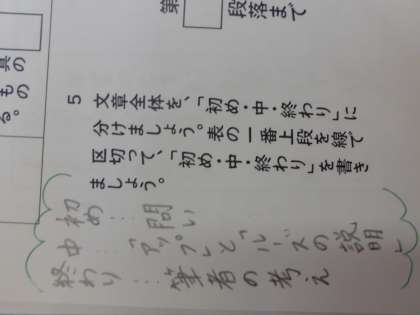 第
段落まで
具の
もの
る。
5 文章全体を、「初め・中・終わり」に
分けましょう。表の一番上段を線で
区切って、「初め・中・終わり」を書き
ましょう。
初め…問い
中…「アップ」と「ルーズの説明」
終わり…筆者の考え